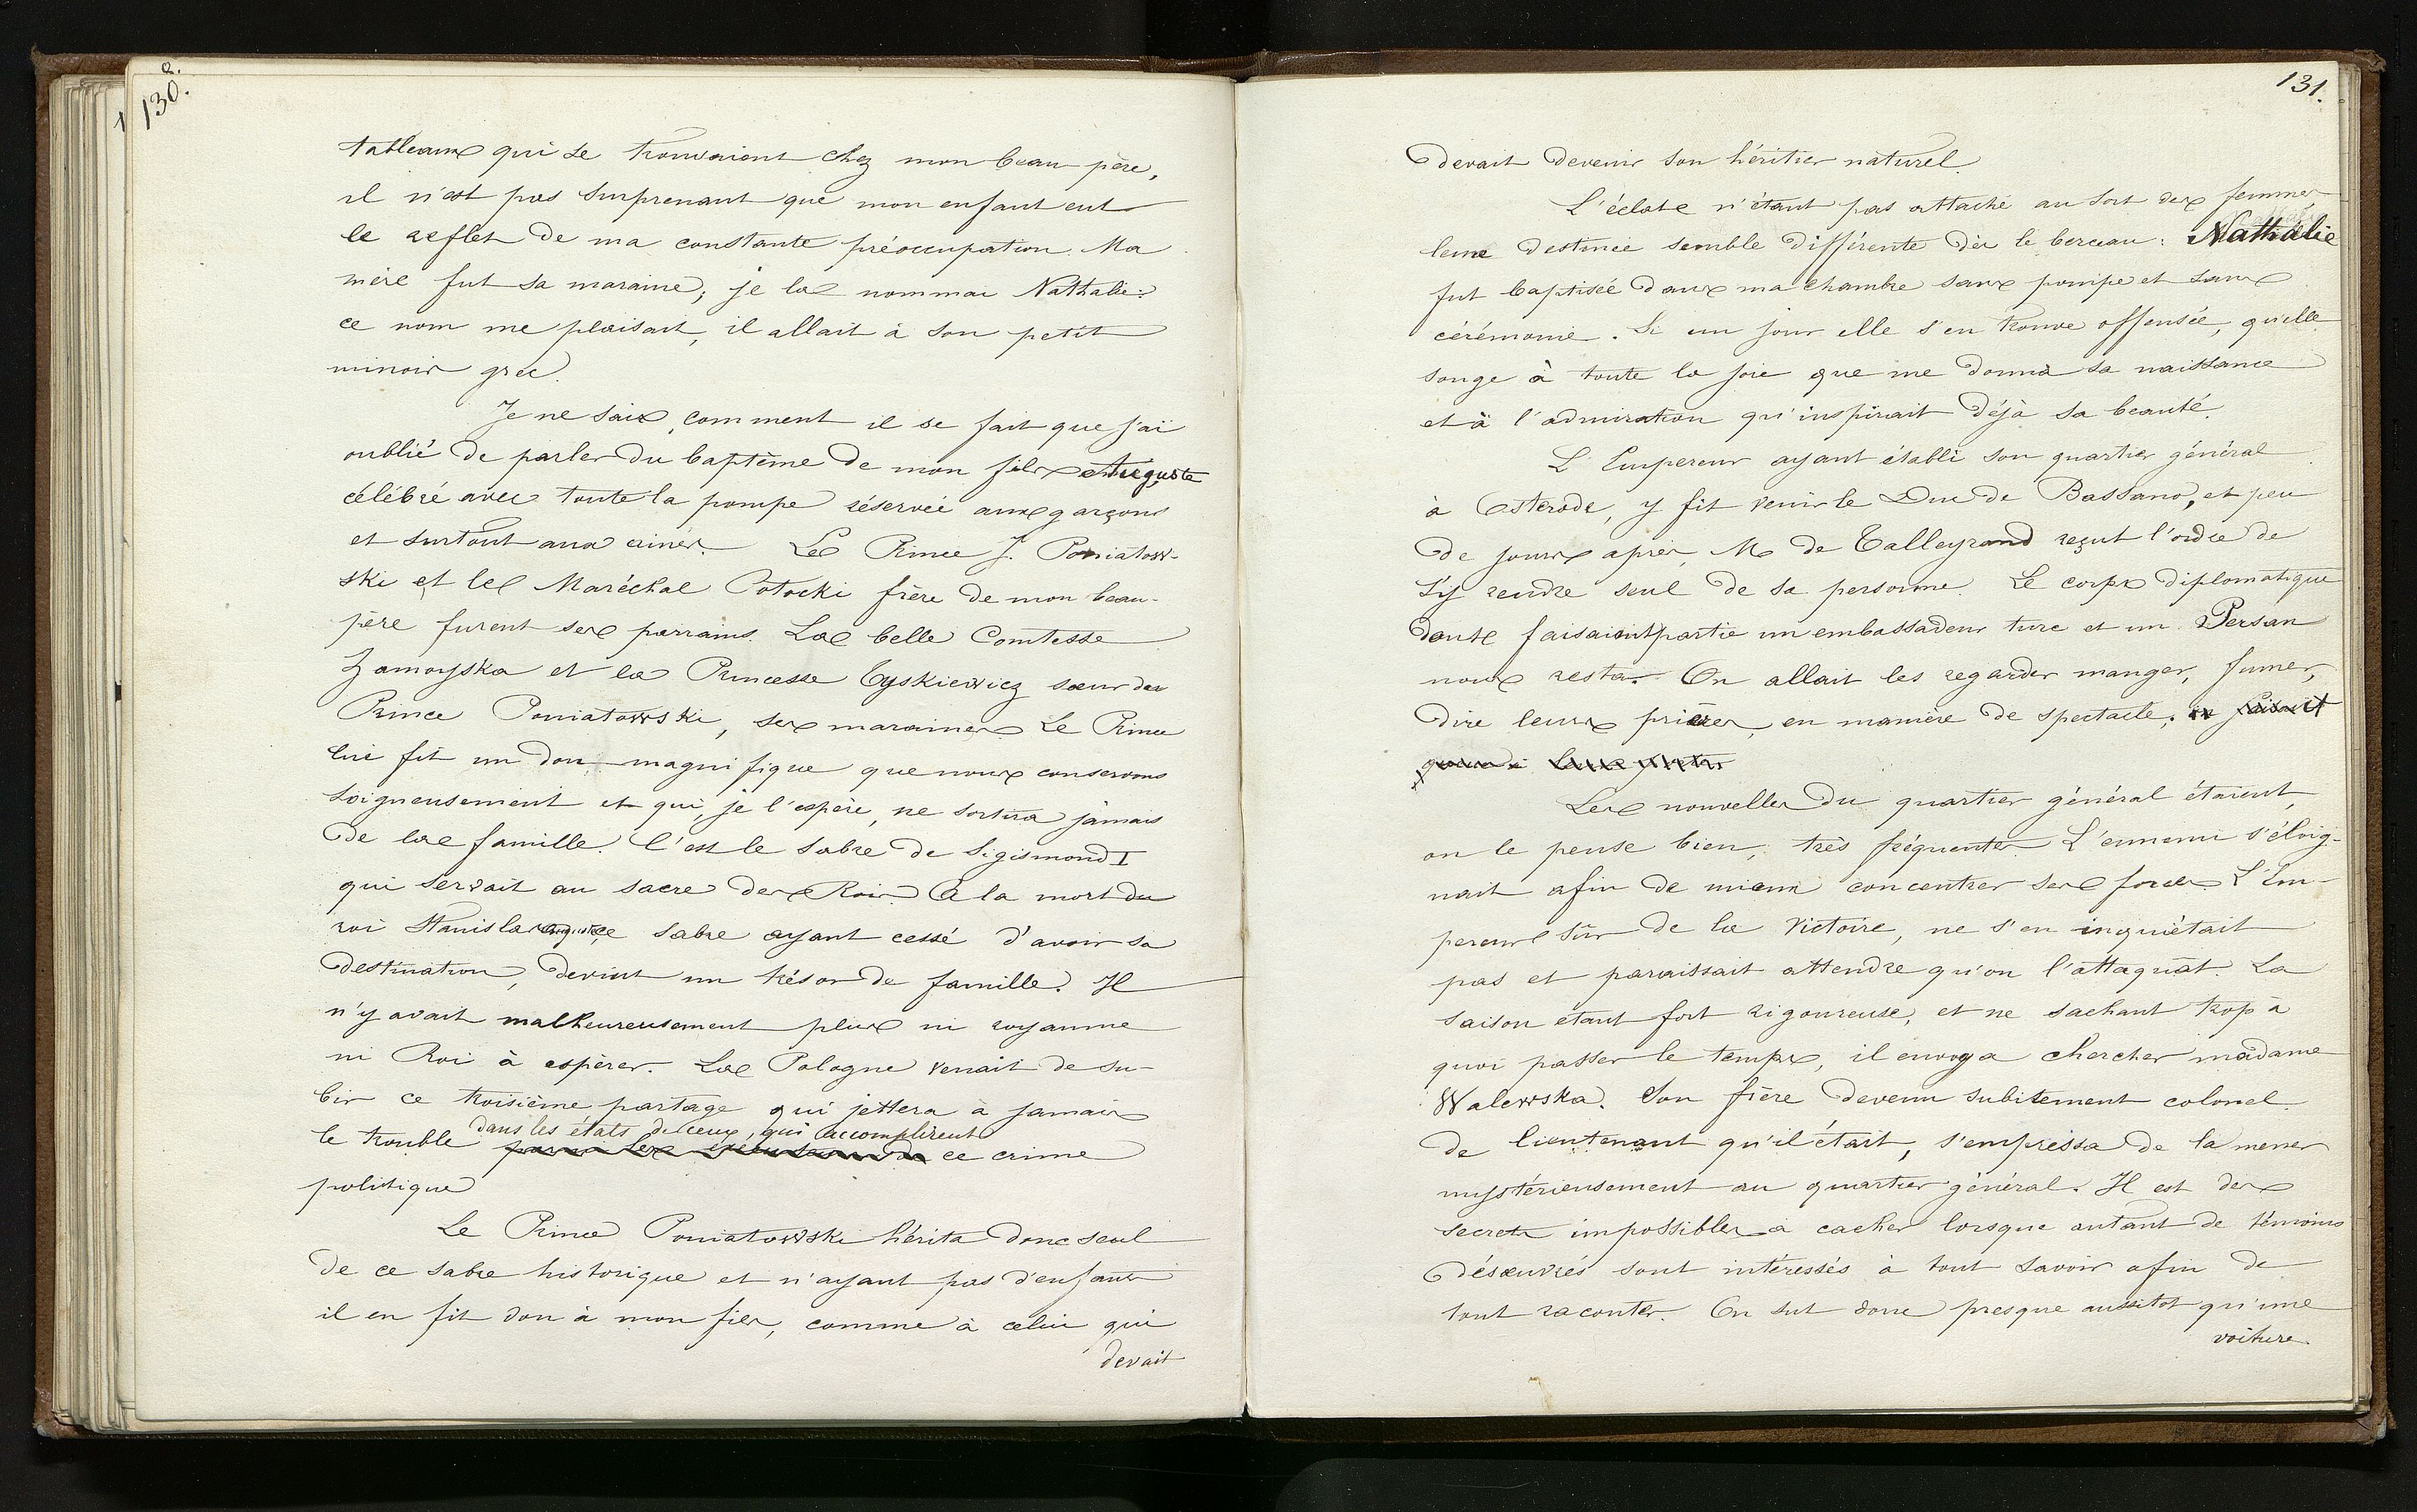 130.
tableaux qui se trouvaient chez mon beau père,
il n'est pas surprenant que mon enfant eut
le reflet de ma constante préoccupation. Ma
mère fut sa maraine; je la nommai Nathalie:
ce nom me plaisait, il allait à son petit
minois grec.
Je ne sais comment il se fait que j'ai
oublié de parler du baptême de mon fils Auguste
célébré avec toute la pompe réservée aux garçons
et surtout aux ainés. Le Prince J. Poniatow-
ski et le Maréchal Potocki frère de mon beau-
père furent ses parrains. La belle Comtesse
Zamoyska et la Princesse Tyskiewicz sœur du
Prince Poniatowski, ses maraines. Le Prince
lui fit un don magnifique que nous conservons
soigneusement et qui, je l'espère, ne sortira jamais
de la famille. C'est le sabre de Sigismond I
qui servait au sacre des Rois. A la mort du
roi Stanislas auguste, ce sabre ayant cessé d'avoir sa
destination, devint un trésor de famille. Il
n'y avait malheureusement plus ni royaume
ni Roi à espérer. La Pologne venait de su-
bir ce troisième partage qui jettera à jamais
dans les états de ceux, qui accomplirent
le trouble parmi les ce crime
politique
Le Prince Poniatowski hérita donc seul
de ce sabre historique et n'ayant pas d'enfans
il en fit don à mon fils, comme à celui qui
devait
131.
devait devenir son héritier naturel.
L'éclat n'étant pas attaché au sort des femmes
leur destinée semble différente dès le berceau: Nathalie
fut baptisée dans ma chambre sans pompe et sans
cérémonie. Si un jour elle s'en trouve offensée, qu'elle
songe à toute la joie que me donna sa naissance
et à l'admiration qu'inspirait déjà sa beauté.
L'Empereur ayant établi son quartier général
à Osterode, y fit venir le Duc de Bassano, et peu
de jours après, Mr de Talleyrand reçut l'ordre de
s'y rendre seul de sa personne. Le corps diplomatique
dont faisaient partie un embassadeur turc et un Persan
nous resta. On allait les regarder manger, fumer,
dire leurs prières, en manière de spectacle.
Les nouvelles du quartier général étaient,
on le pense bien, très fréquentes. L'ennemi s'éloig-
nait afin de mieux concentrer ses forces. L'Em-
pereur sûr de la victoire, ne s'en inquiétait
pas et paraissait attendre qu'on l'attaquât. La
saison étant fort rigoureuse, et ne sachant trop à
quoi passer le temps, il envoya chercher madame
Walewska. Son frère devenu subitement colonel
de lieutenant qu'il était, s'empressa de la mener
mystérieusement au quartier général. Il est des
secrets impossibles à cacher lorsque autant de témoins
désœuvrés sont intéressés à tout savoir afin de
tout raconter. On sut donc presque aussitot qu'une
voiture